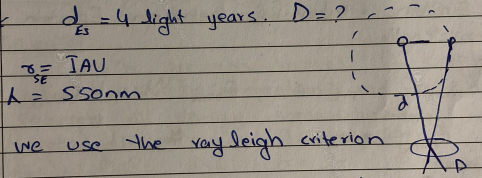 d_ES = 4 light years. D = ?
r_SE = 1AU
λ = 550nm
d
we use the rayleigh criterion
D